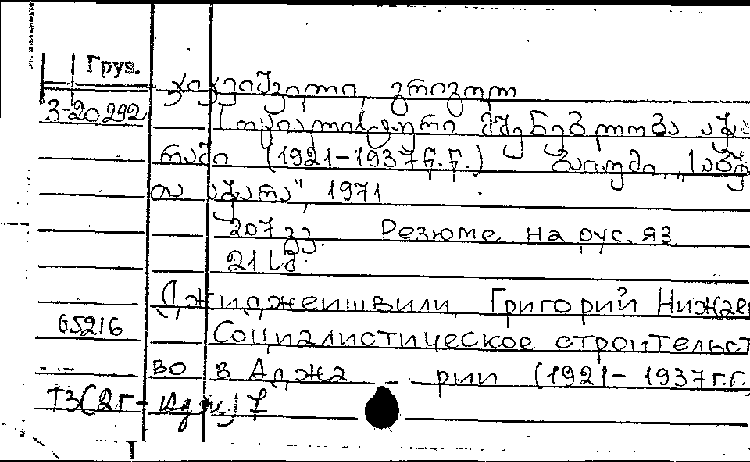 Груз.
ჯიჯეიშვილი, გრიგოლ
3-20292 სოციალისტური მშენებლობა აჭა
რაში (1921-1937წ.წ.) ბათუმი, „საბჭ
თა აჭარა", 1971
207 გვ. Резюме на рус. яз
21 სმ.
Джиджеишвили, Григорий
65216 Социалистическое строительст
во в Аджа рии (1921-1937 г.г.